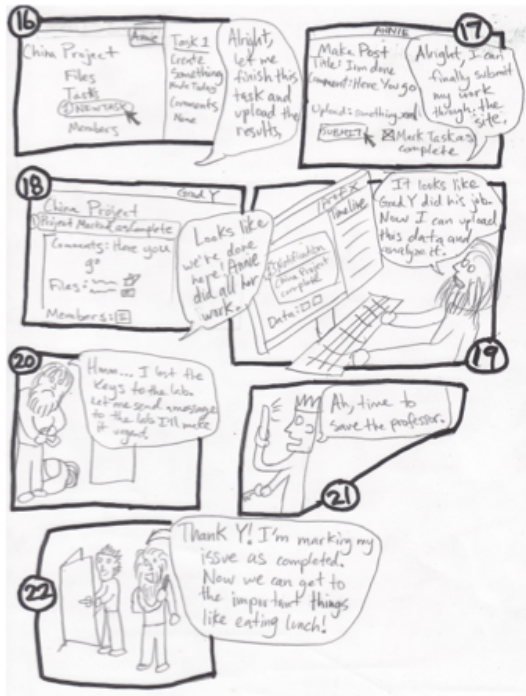 16
Annie
China Project
Files
Tasks
① NEW TASK
Members
Task 1
Create
Something
Made Today
Comments
None
Alright,
let me
finish this
task and
upload the
results.
17
ANNIE
Make Post
Title: I'm done
Comment: Here You go
Upload: something.xml
SUBMIT
Mark Task as
complete
Alright, I can
finally submit
my work
through the
site.
18
Grad Y
China Project
Project Marked as Complete
Comments: Here you
go
Files:
Members: 1
Looks like
we're done
here! Annie
did all her
work.
19
Prof X
Timeline
Notification
China Project
complete
Data:
It looks like
Grad Y did his job.
Now I can upload
this data and
analyze it.
20
Hmm... I lost the
keys to the lab.
Let me send a message
to the lab. I'll make
it urgent.
21
Ah, time to
save the professor.
22
Thank Y! I'm marking my
issue as completed.
Now we can get to
the important things
like eating lunch!